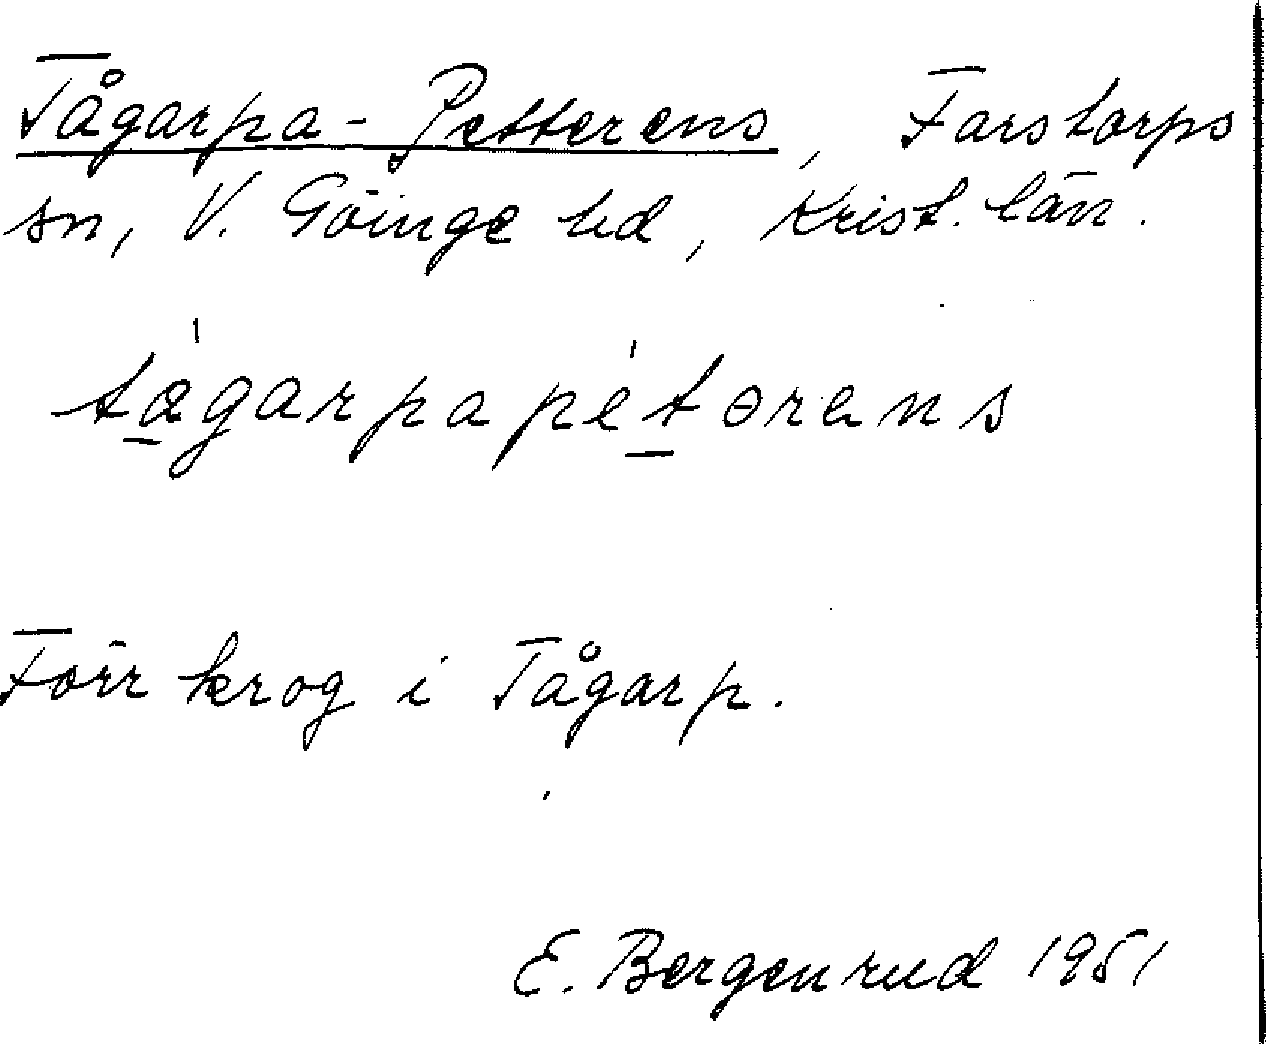 Tågarpa-Petterens, Farstorps
sn, V. Göinge hd, Krist. län.
tågarpapètərens
Förr krog i Tågarp.
E. Bergenrud 1951